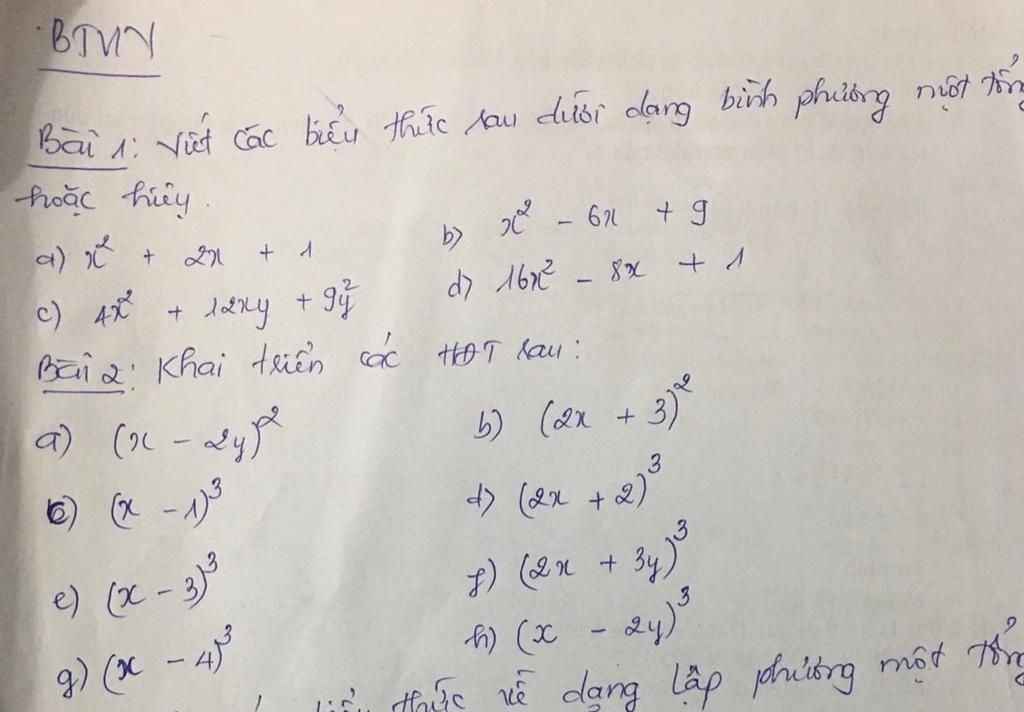 BTVN
Bài 1: Viết các biểu thức sau dưới dạng bình phương một tổng
hoặc hiệu.
a) x² + 2x + 1 b) x² - 6x + 9
c) 4x² + 12xy + 9y² d) 16x² - 8x + 1
Bài 2: Khai triển các HĐT sau:
a) (x - 2y)² b) (2x + 3)²
c) (x - 1)³ d) (2x + 2)³
e) (x - 3)³ f) (2x + 3y)³
g) (x - 4)³ h) (x - 2y)³
thức về dạng lập phương một tổng